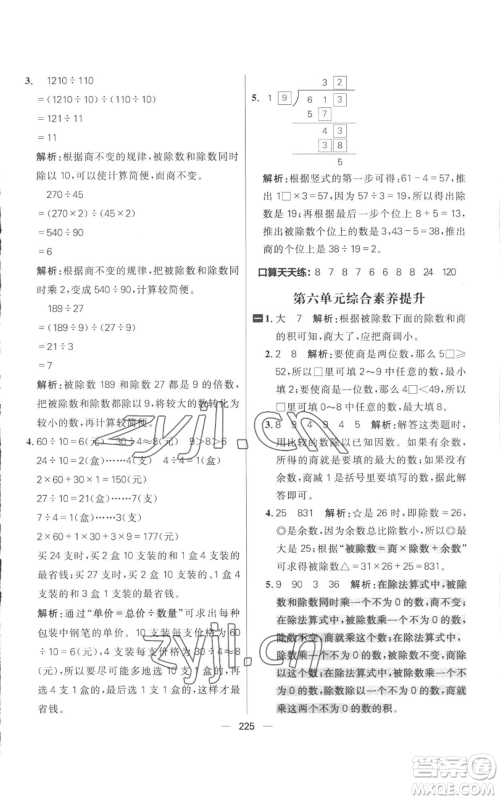 3. 1210÷110
=(1210÷10)÷(110÷10)
=121÷11
=11
解析:根据商不变的规律,被除数和除数同时
除以 10,可以使计算简便,而商不变。
270÷45
=(270×2)÷(45×2)
=540÷90
=6
解析:根据商不变的规律,被除数和除数同
时乘 2,变成 540÷90,计算较简便。
189÷27
=(189÷9)÷(27÷9)
=21÷3
=7
解析:被除数 189 和除数 27 都是 9 的倍数,
把被除数和除数同时除以 9,将较大的数转化为
较小的数,再计算较简便。
4. 60÷10=6(元) 30÷4≈8(元) 9>8>6
24÷10=2(盒)……4(支)
2×60+1×30=150(元)
27÷10=2(盒)……7(支)
7÷4=1(盒)……3(支)
2×60+1×30+3×9=177(元)
买 24 支时,买 2 盒 10 支装的和 1 盒 4 支装的
最省钱。买 27 支时,买 2 盒 10 支装的、1 盒
4 支装的和 3 支单支的最省钱。
解析:通过“单价=总价÷数量”可以知道两种
包装中钢笔的单价。10 支装的每支价格为 60÷
10=6(元),4 支装的每支价格为 30÷4≈8
(元),所以要尽可能多地选择 10 支 1 盒的,再
选 4 支 1 盒的,最后选择 1 支 1 盒的,这样最
省钱。
5. 3 2
1 9 6 1 3
5 7
4 3
3 8
5
解析:根据竖式的第一步可得:61-4=57,推出
1□×3=57,因为 19×3=57,所以除
数是 19;再根据最后个位上 8+5=13,
推出被除数的个位上是 3,43-5=38,所
以商的个位上是 38÷19=2。
口算天天练: 8 7 8 7 6 6 8 8 24 120
第六单元综合素养提升
一 1. 大 7 解析:根据被除数下面的除数和商
的积可知,商大了,应把商调小。
2. 2 8 解析:要使商是两位数,那么 5□≥
52,所以□里可填 2~9 中任意的数,最小
填 2;要使商是一位数,那么 4□<49,所
以□里可填 0~8 中任意的数,最大填 8。
3. 8 9 4 9 4 5 解析:解答这类题时,
用比较的数除以已知因数。若有余数,
则商就是要填的最大的数;若没有余数,
则商减 1 是括号里要填写的数,据此解
答即可。
4. 25 831 解析:☆是 26 时,即除数=26,
◎是余数,余数要比除数小,则◎最大是
25。根据“被除数=商×除数+余数”可
求得被除数△=31×26+25=831。
5. 9 90 3 36 解析:在除法算式中,被除
数和除数同时乘一个不为 0 的数,商不变;在除法算式中,被
除数不变,除数乘一个不为 0 的数,
商就除以一个不为 0 的数;在除法算式
中,被除数除以一个不为 0 的数,除
数乘一个不为 0 的数,商就除以
这两个不为 0 的数的积。
225
zyjl.cn
zyjl.cn
答案圈